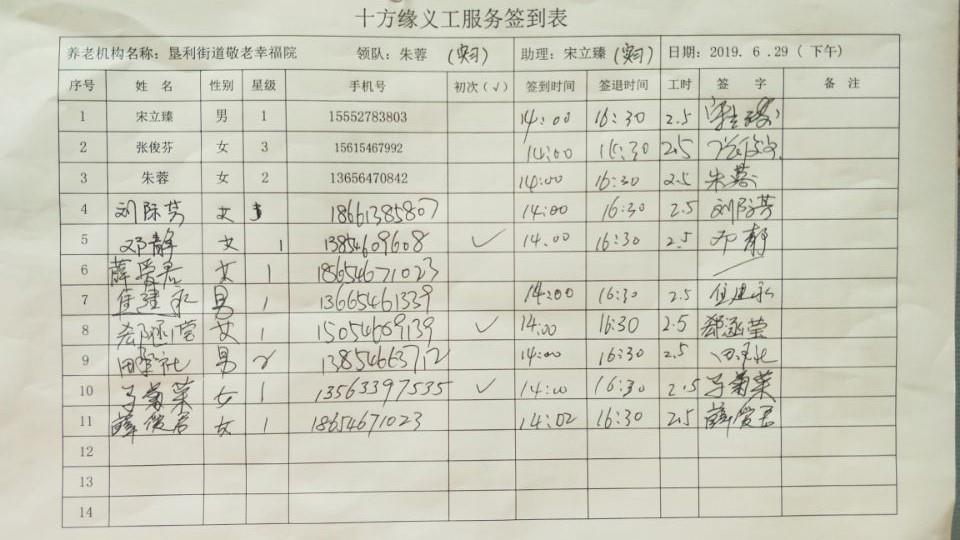 十方缘义工服务签到表
养老机构名称：垦利街道敬老幸福院 领队：朱蓉 (实习) 助理：宋立臻 (实习) 日期：2019．6．29（下午）
序号 姓 名 性别 星级 手机号 初次（√） 签到时间 签退时间 工时 签 字 备 注
1 宋立臻 男 1 15552783803 14:00 16:30 2.5 宋立臻
2 张俊芬 女 3 15615467992 14:00 16:30 2.5 张俊芬
3 朱蓉 女 2 13656470842 14:00 16:30 2.5 朱蓉
4 刘际芳 女 18661385807 14:00 16:30 2.5 刘际芳
5 邓静 女 1 13854609608 √ 14.00 16:30 2.5 邓静
6 薛爱君 女 1 18654671023
7 男 1 13665461339 14:00 16:30 2.5
8 郄函莹 女 1 15054669139 √ 14:00 16:30 2.5 郄函莹
9 男 2 13854663712 14:00 16:30 2.5
10 菊菜 女 1 13563397535 √ 14:00 16:30 2.5 菊菜
11 薛爱君 女 1 18654671023 14:02 16:30 2.5 薛爱君
12
13
14